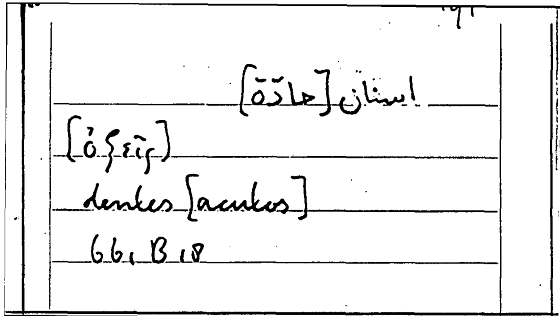 اسنان [حادّة]
[ὀξεῖς]
dentes [acutos]
66, B 18